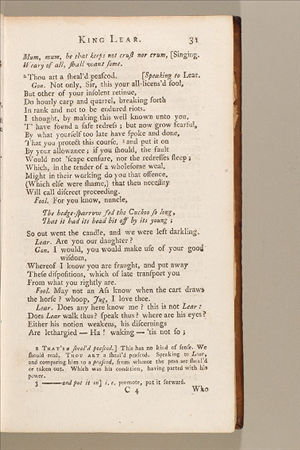 KING LEAR. 31
Mum, mum, he that keeps not crust nor crum, [Singing.
Weary of all, shall want some.
2 Thou art a sheal'd peascod. [Speaking to Lear.
Gon. Not only, Sir, this your all-licens'd fool,
But other of your insolent retinue,
Do hourly carp and quarrel, breaking forth
In rank and not to be endured riots.
I thought, by making this well known unto you,
T' have found a safe redress; but now grow fearful,
By what yourself too late have spoke and done,
That you protect this course, 3 and put it on
By your allowance; if you should, the fault
Would not 'scape censure, nor the redresses sleep;
Which, in the tender of a wholesome weal,
Might in their working do you that offence,
(Which else were shame,) that then necessity
Will call discreet proceeding.
Fool. For you know, nuncle,
The hedge-sparrow fed the Cuckoo so long,
That it had its head bit off by its young;
So out went the candle, and we were left darkling.
Lear. Are you our daughter?
Gon. I would, you would make use of your good
wisdom,
Whereof I know you are fraught, and put away
These dispositions, which of late transport you
From what you rightly are.
Fool. May not an Ass know when the cart draws
the horse? whoop, Jug, I love thee.
Lear. Does any here know me? this is not Lear:
Does Lear walk thus? speak thus? where are his eyes?
Either his notion weakens, his discernings
Are lethargied — Ha! waking — 'tis not so;
2 THAT'S a sheal'd peascod.] This has no kind of sense. We
should read, THOU ART a sheal'd peascod. Speaking to Lear,
and comparing him to a peascod, from whence the peas are sheal'd
or taken out. Which was his condition, having parted with his
power.
3 —and put it on] i. e. promote, put it forward.
C 4 Who